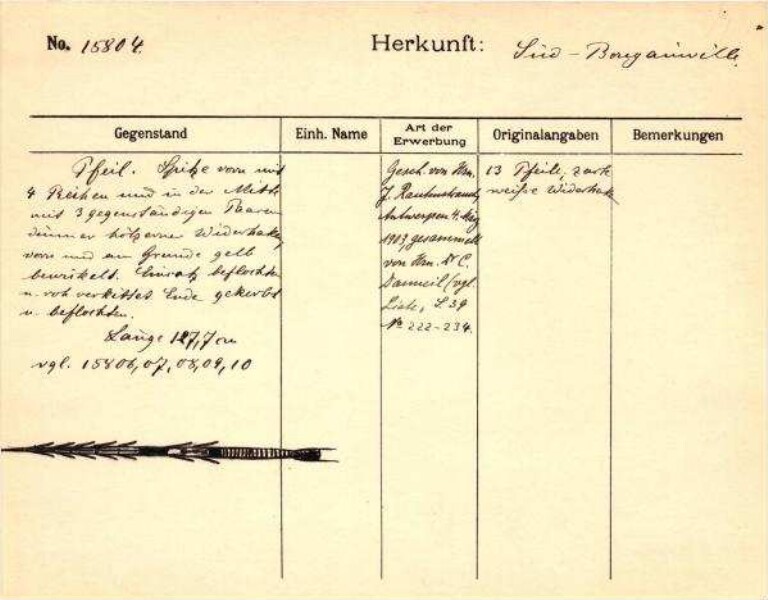 No. 15804.
Herkunft: Süd - Bougainville.
Gegenstand
Einh. Name
Art der Erwerbung
Originalangaben
Bemerkungen
Pfeil. Spitze vorn mit
4 Reihen und in der Mitte
mit 3 gegenständigen Paaren
dünner hölzerner Widerhaken,
vorn und am Grunde gelb
bewickelt. Einsatz beflochten
u. rot verkittet Ende gekerbt
u. beflochten.
Länge 127,7 cm
vgl. 15806, 07, 08, 09, 10
Gesch. von Hrn.
J. Rautenstrauch,
Antwerpen 4. May
1903, gesammelt
von Hrn. Dr C.
Danneil (vgl.
Liste, S. 39
No 222-234.
13 Pfeile,
weisse Widerhaken